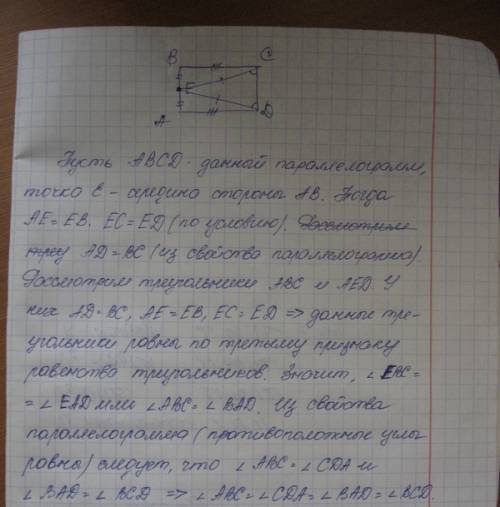 B C
E
A D
Пусть ABCD - данный параллелограмм,
точка E - середина стороны AB. Тогда
AE = EB. EC = ED (по условию). Рассмотрим
треу AD = BC (из свойства параллелограмма).
Рассмотрим треугольники ABC и AED. У
них AD = BC, AE = EB, EC = ED => данные тре-
угольники равны по третьему признаку
равенства треугольников. Значит, ∠EBC =
= ∠EAD или ∠ABC = ∠BAD. Из свойства
параллелограмма (противоположные углы
равны) следует, что ∠ABC = ∠CDA и
∠BAD = ∠BCD => ∠ABC = ∠CDA = ∠BAD = ∠BCD.